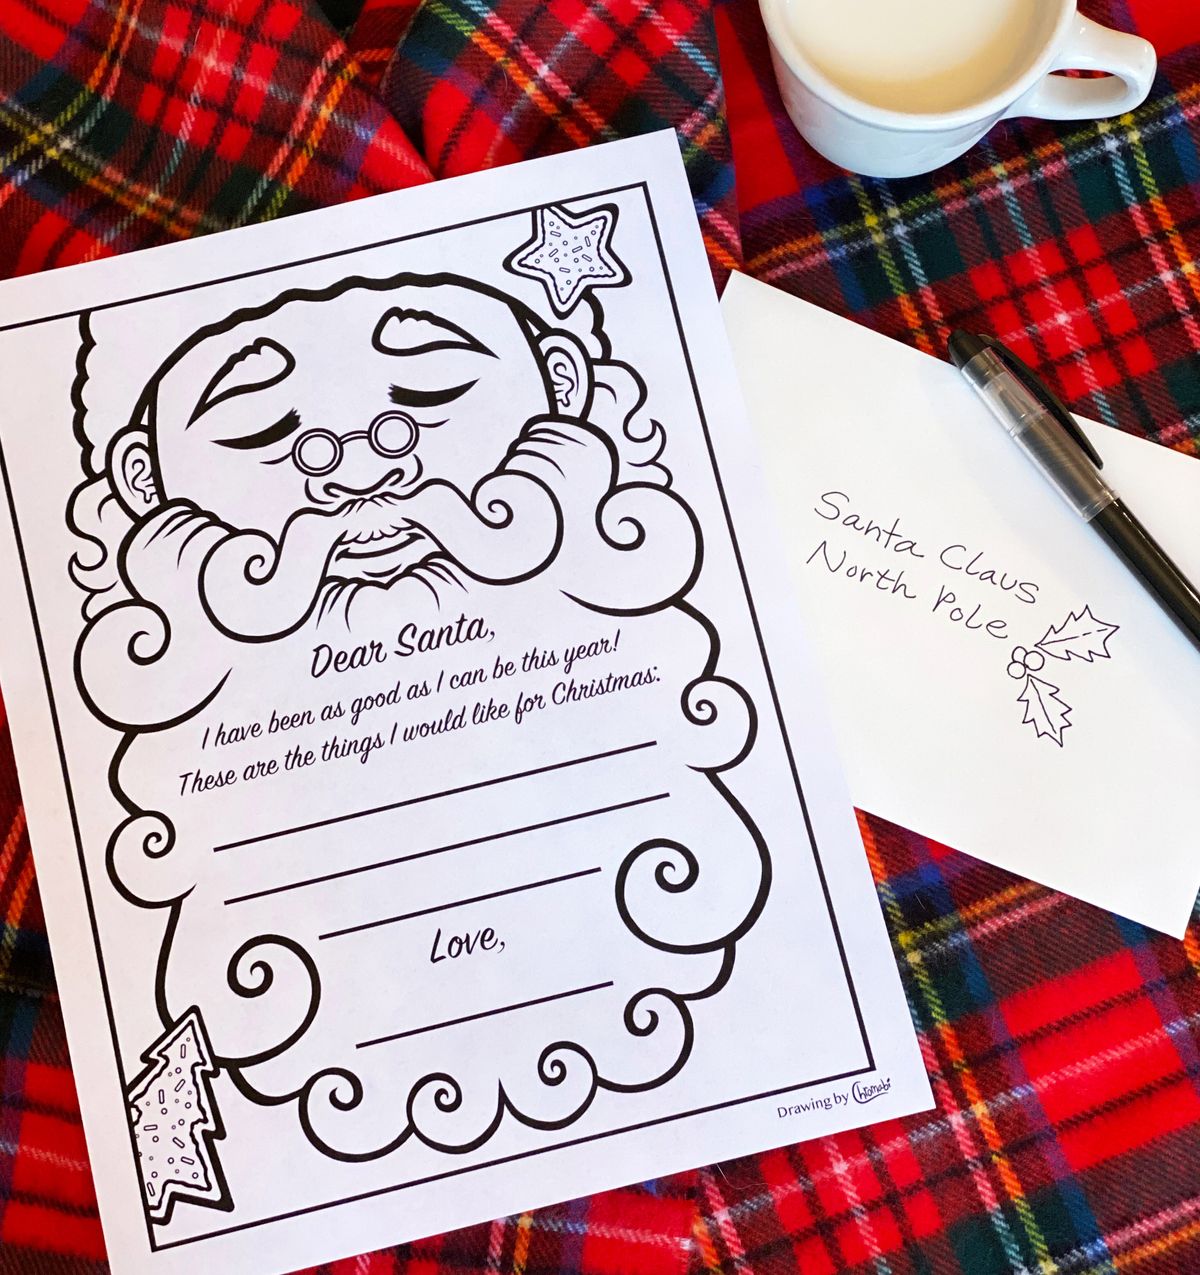 Dear Santa,
I have been as good as I can be this year!
These are the things I would like for Christmas:
Love,
Drawing by Chromabi
Santa Claus
North Pole